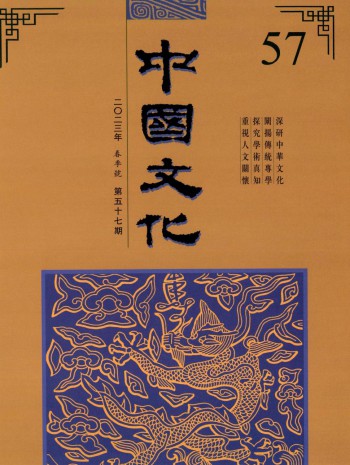 57
中國文化
二〇二三年 春季號 第五十七期
深研中華文化
闡揚傳統專學
探究學術真知
重視人文關懷